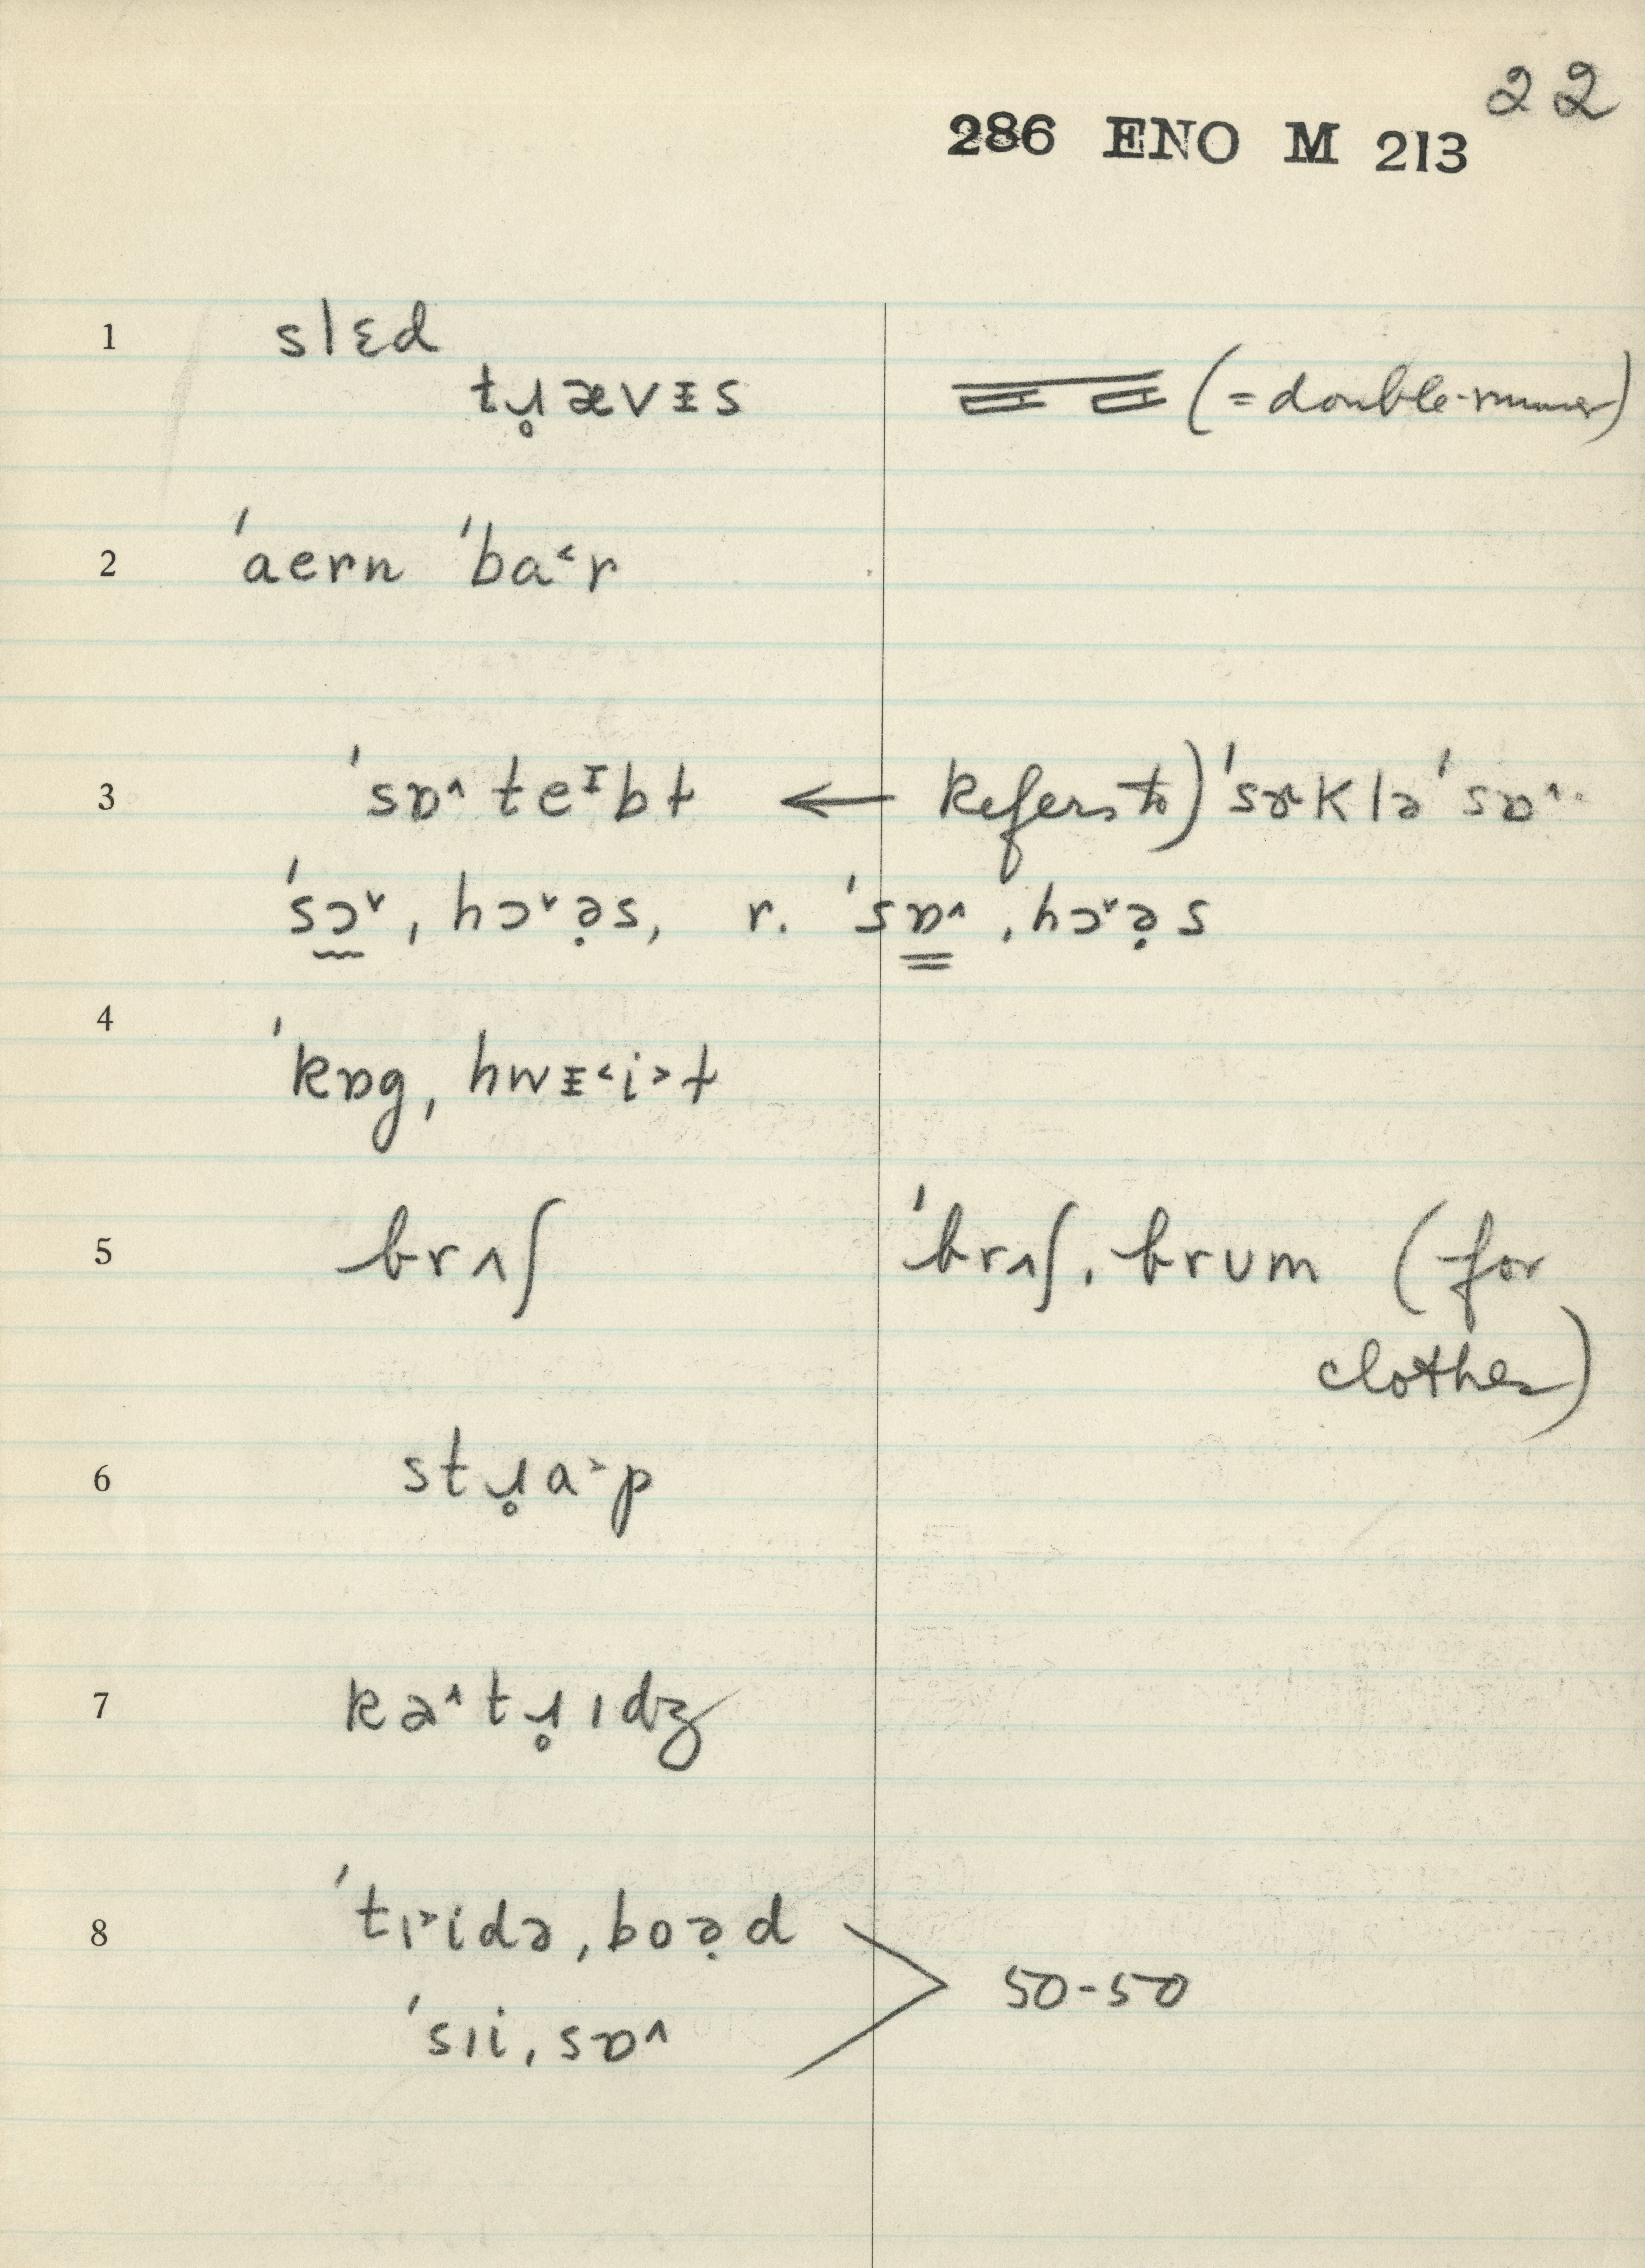 22
286 ENO M 213
1 slɛd
tɹ̥ævɪ̵s (= double-runner)
2 ˈaern ˈba˂r
3 ˈsɒ˄ teᵻbt ← Refers to) ˈsɚklə ˈsɒ˄
ˈsɔ˅, hɔ˅ə̣s, r. ˈsɒ˄, hɔ˅ə̣s
4 ˈkɒg, hwɪ̵˂i˃t
5 brʌʃ ˈbrʌʃ, brum (for
clothes)
6 stɹ̥a˃p
7 kə˄tɹ̥ɪdʒ
8 ˈtɪ˃idə, boə̣d
50-50
ˈsɪi, sɒ˄